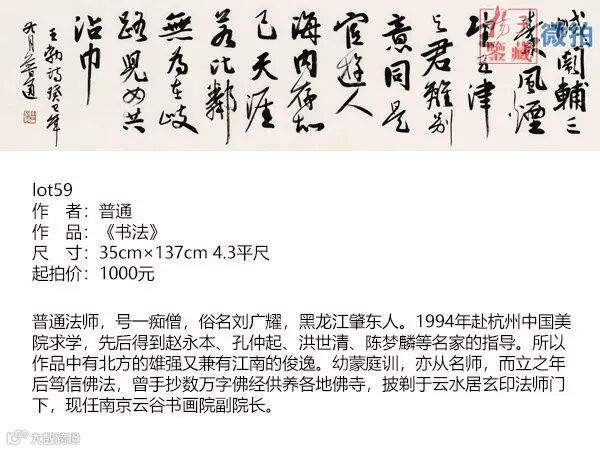 城闕輔三
秦風煙
望五津
与君離别
意同是
宦遊人
海内存知
己天涯
若比鄰
無為在歧
路兒女共
沾巾
王勃詩癸巳年
九月普通
揚子鑒藏
微拍
lot59
作 者：普通
作 品：《书法》
尺 寸：35cm×137cm 4.3平尺
起拍价：1000元
普通法师，号一痴僧，俗名刘广耀，黑龙江肇东人。1994年赴杭州中国美
院求学，先后得到赵永本、孔仲起、洪世清、陈梦麟等名家的指导。所以
作品中有北方的雄强又兼有江南的俊逸。幼蒙庭训，亦从名师，而立之年
后笃信佛法，曾手抄数万字佛经供养各地佛寺，披剃于云水居玄印法师门
下，现任南京云谷书画院副院长。
大数跨境